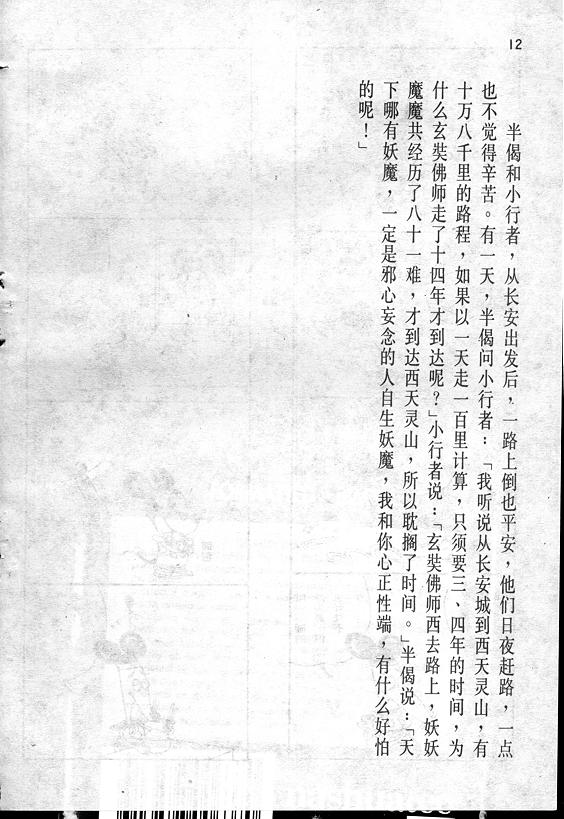 12
半偈和小行者，从长安出发后，一路上倒也平安，他们日夜赶路，一点
也不觉得辛苦。有一天，半偈问小行者：「我听说从长安城到西天灵山，有
十万八千里的路程，如果以一天走一百里计算，只须要三、四年的时间，为
什么玄奘佛师走了十四年才到达呢？」小行者说：「玄奘佛师西去路上，妖妖
魔魔共经历了八十一难，才到达西天灵山，所以耽搁了时间。」半偈说：「天
下哪有妖魔，一定是邪心妄念的人自生妖魔，我和你心正性端，有什么好怕
的呢！」